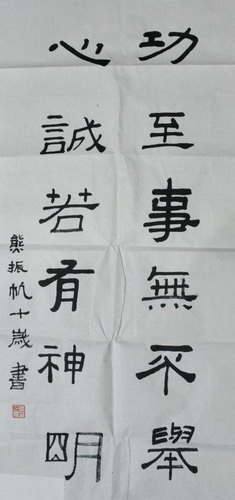 功至事無不舉
心誠若有神明
熊振帆十歲書